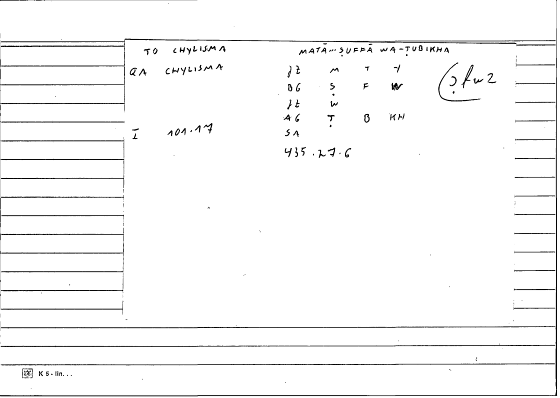 TO CHYLISMA MATĀ... ṢUFFĀ WA-ṬUBIKHA
QA CHYLISMA jz M T Y
BG Ṣ F W
jz W
AG Ṭ B KH
I 101.17 SA
435.27.6
K 5 - lin...